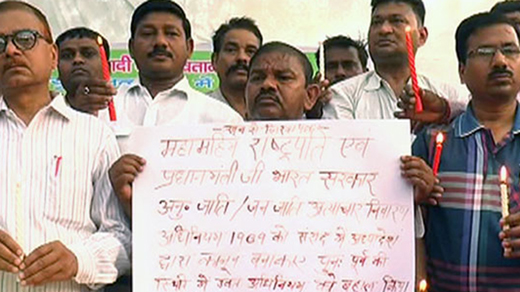 महामहिम राष्ट्रपति एवं
प्रधानमंत्री जी भारत सरकार
अनु॰ जाति / जन जाति अत्याचार निवारण
अधिनियम 1989 को संसद में अध्यादेश
द्वारा कानून बनाकर पुनः पूर्व की
स्थिति में उक्त अधिनियम को बहाल किया